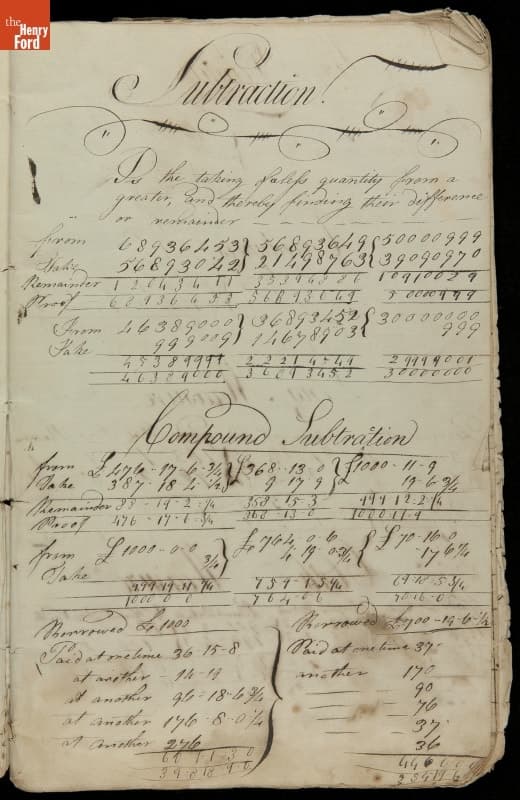 the Henry Ford
Subtraction.
Is the taking of a less quantity from a
greater, and thereby finding their difference
or remainder
from 68936453 56893649 50000999
Take 56893042 21498763 39090970
Remainder 12043411 10910029
Proof
From 46389000 36893452 30000000
Take 999009 14678903 999
45389991 22214549 29999001
46389000 36893452 30000000
Compound Subtration
from £476-17-6-3/4 £368-13-0 £1000-11-9
Take 387-18-4-1/2 9 17 9 19-6 3/4
Remainder 358-15-3 999 12-2 1/4
Proof 368-13-0 1000 11-9
from £1000-0-0 £764 0-6 £70-16 0
Take 3/4 17 6 3/4
999 19-11 1/4 759-1-5 1/4 69-18-5 3/4
1000 0 0
Borrowed £1100
Paid at one time 36-15-8
at another - 14-19
at another 96-18-6 3/4
at another 176-8-0 1/4
at another 276
Borrowed £700-19-6-1/2
Paid at one time 37
another 170
90
76
37
36